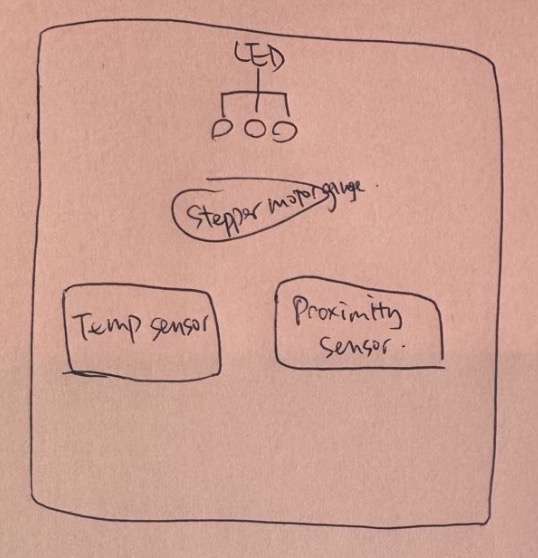 LED
Stepper motor gauge.
Temp sensor
Proximity
sensor.